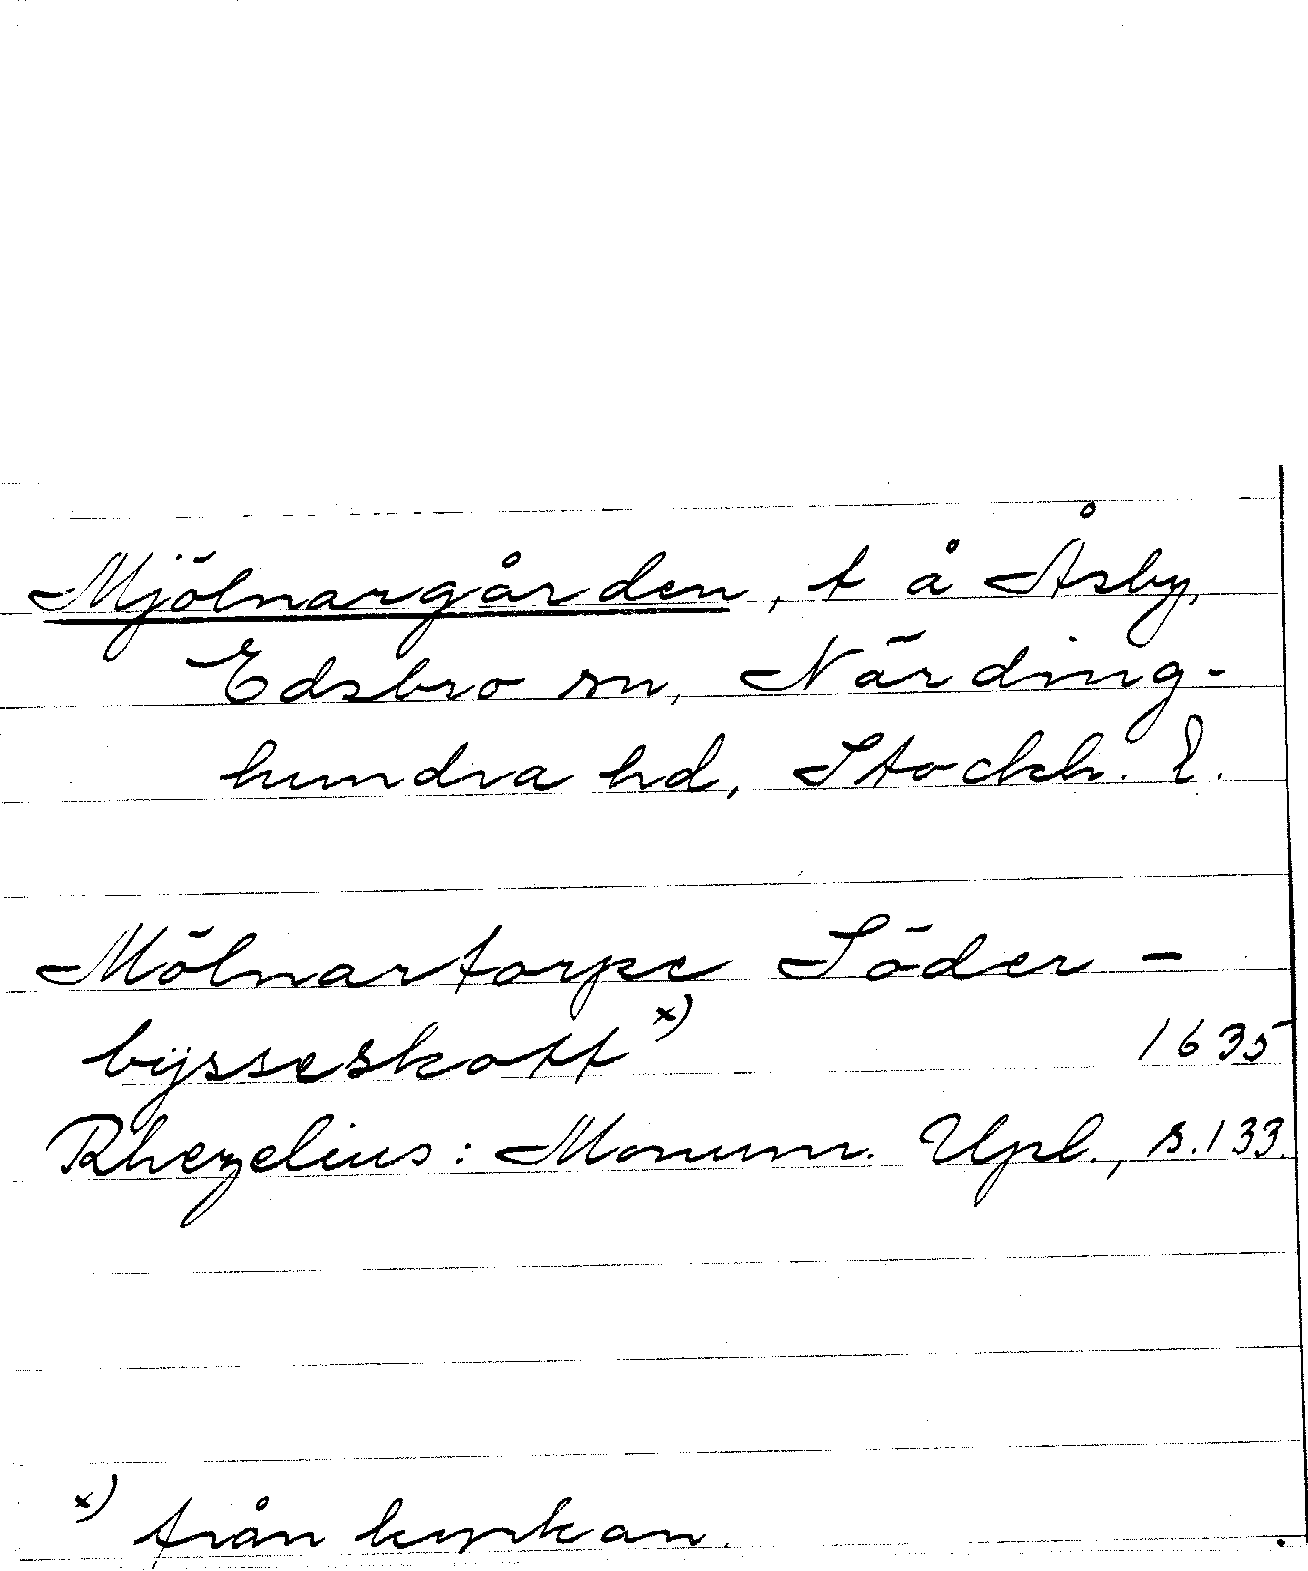 Mjölnargården, t å Åsby,
Edsbro sn, Närding-
hundra hd, Stockh. l.
Mölnartorpe Söder -
bysseskott x) 1635
Rhezelius: Monum. Upl., s. 133.
x) från kyrkan.